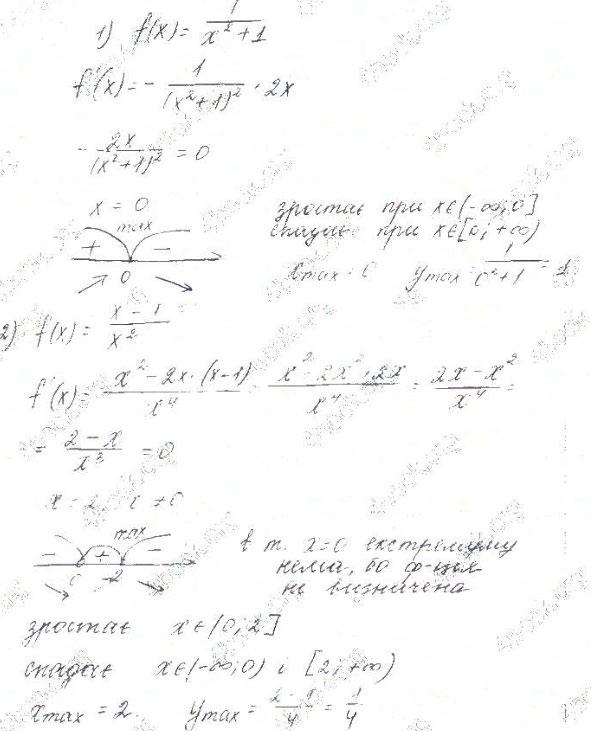 1) f(x) = 1/(x² + 1)
f'(x) = - 1/(x² + 1)² · 2x
- 2x/(x² + 1)² = 0
x = 0
max
+ -
0
зростає при x∈(-∞; 0]
спадає при x∈[0; +∞)
x max = 0 y max = 1/(0² + 1) = 1
2) f(x) = (x - 1)/x²
f'(x) = (x² - 2x · (x - 1))/x⁴ = (x² - 2x² + 2x)/x⁴ = (2x - x²)/x⁴ =
= (2 - x)/x³ = 0
x = 2 x ≠ 0
max
- + -
0 2
в т. x=0 екстремуму
нема, бо ф-ція
не визначена
зростає x∈(0; 2]
спадає x∈(-∞; 0) і [2; +∞)
x max = 2. y max = (2 - 1)/4 = 1/4